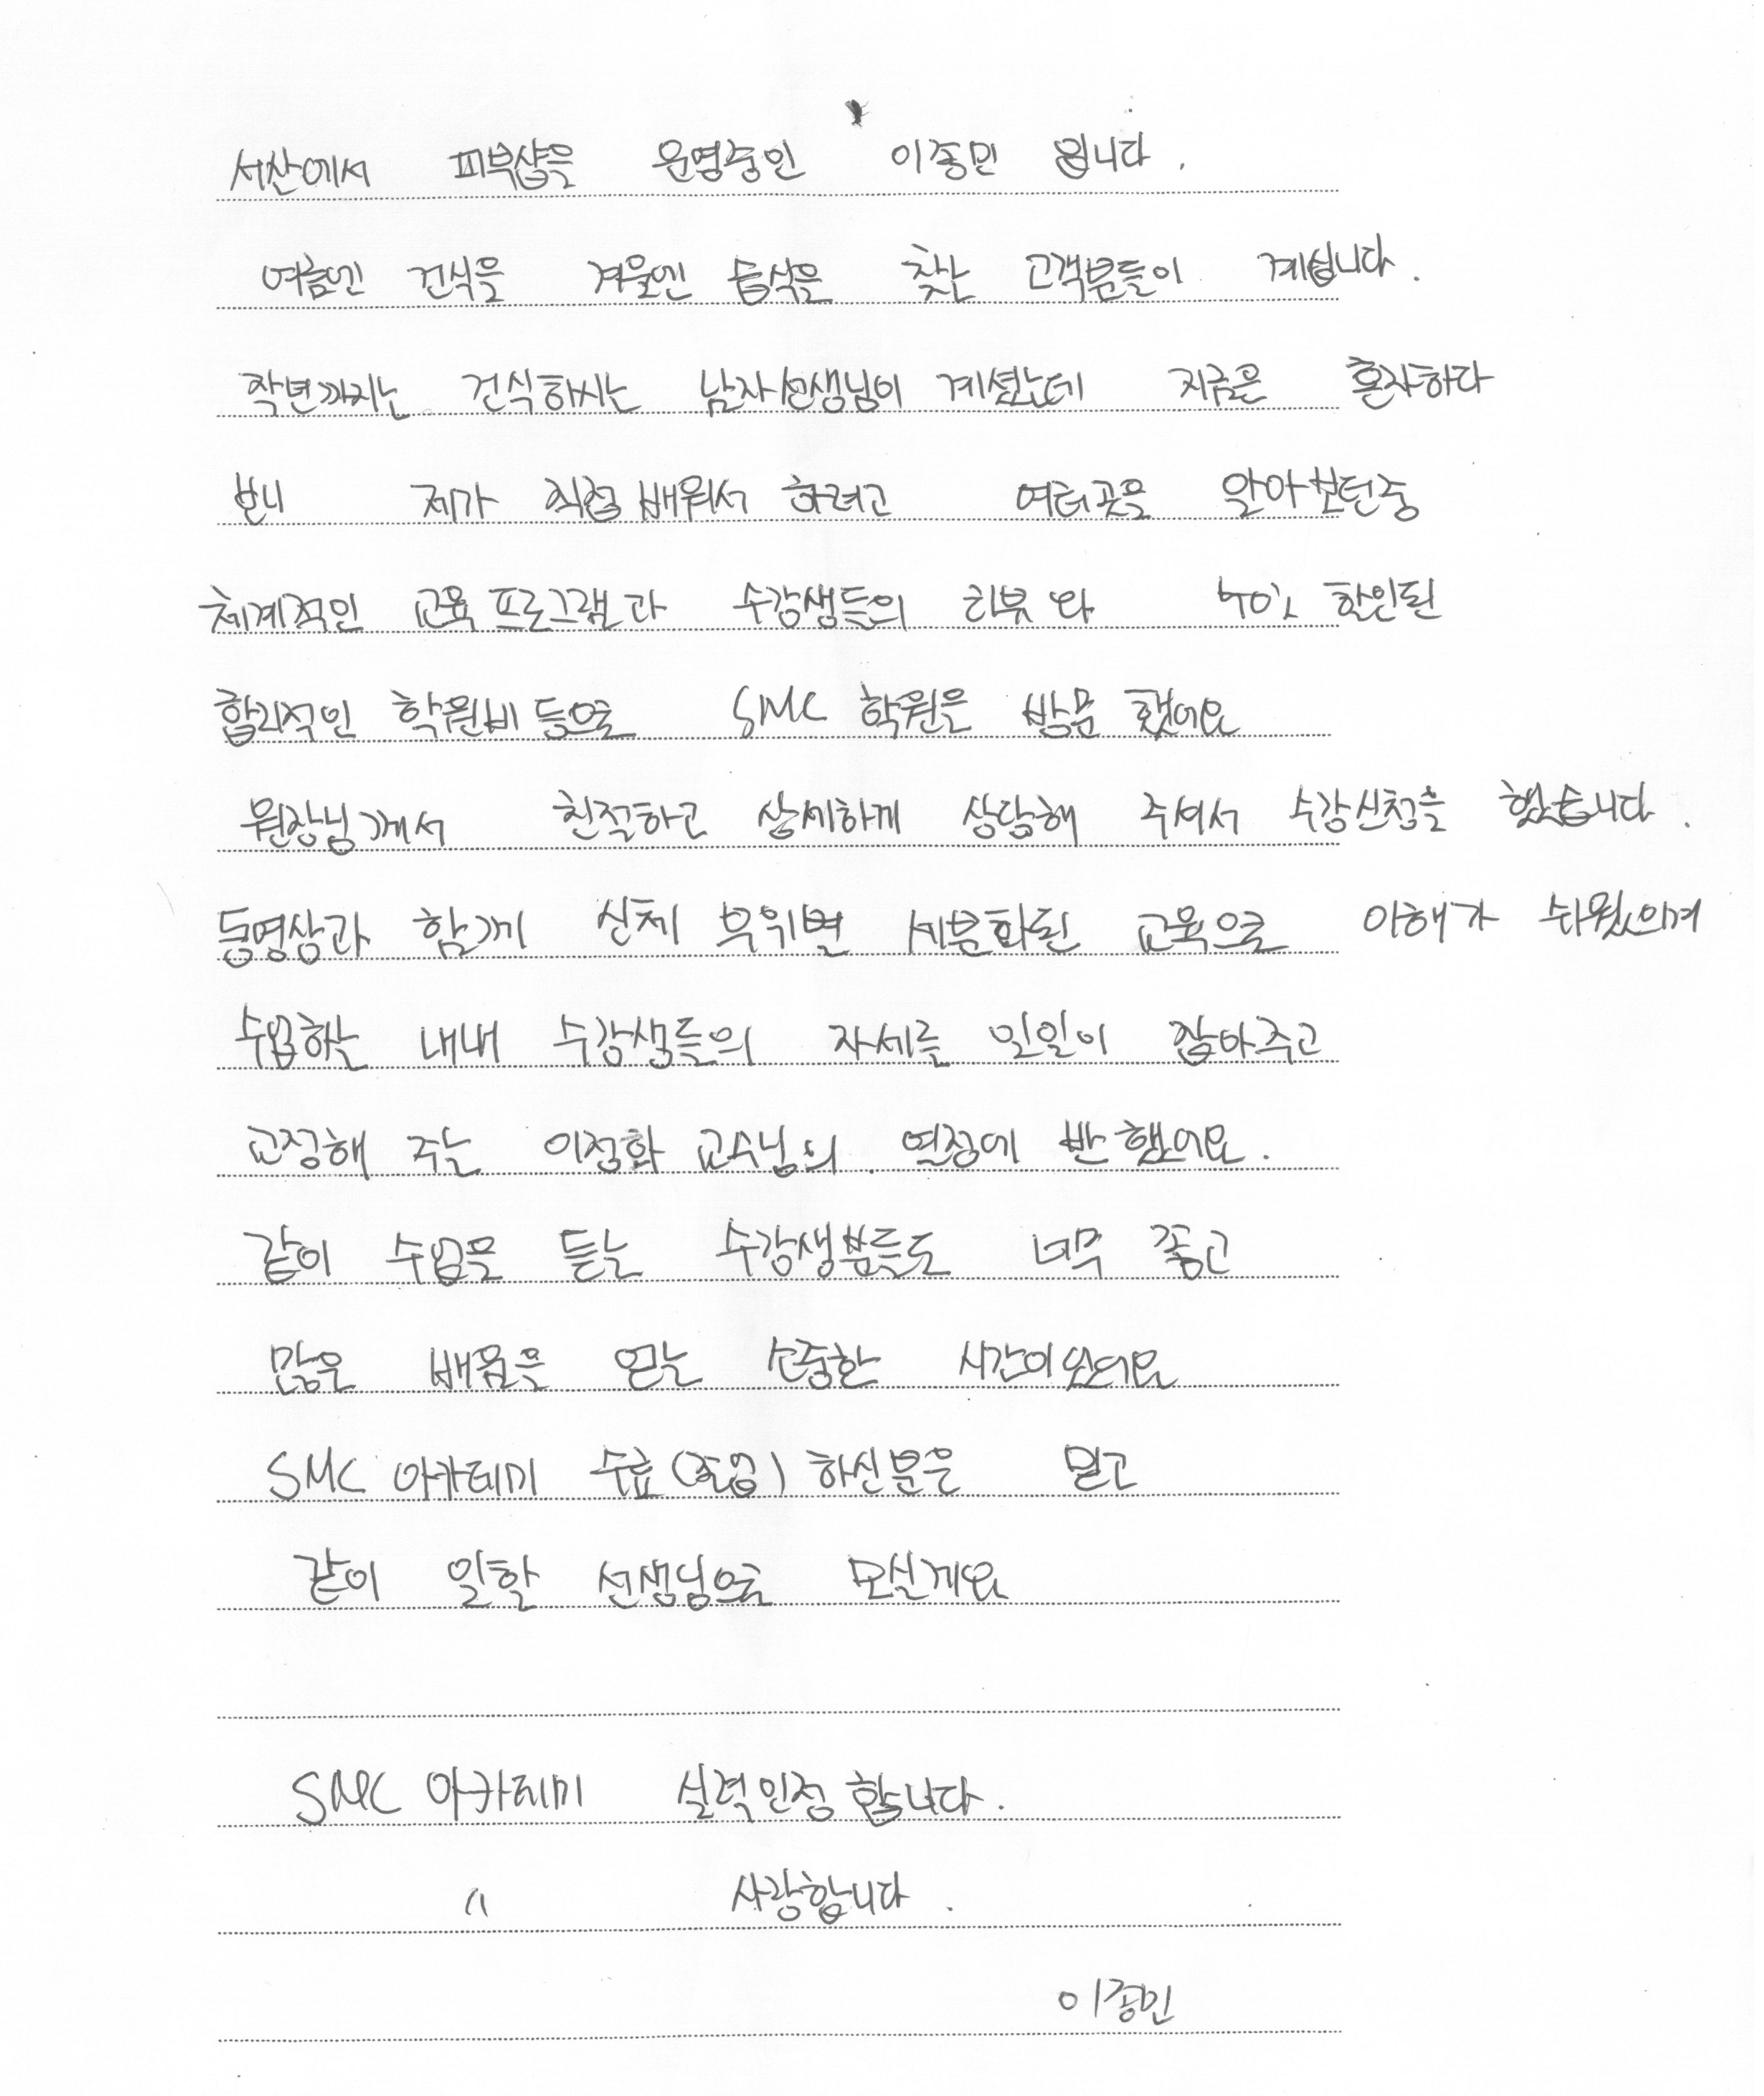 서산에서 피부샵을 운영중인 이종민 입니다.
여름엔 건식을 겨울엔 습식을 찾는 고객분들이 계십니다.
작년까지는 건식하시는 남자선생님이 계셨는데 지금은 혼자하다
보니 제가 직접 배워서 하려고 여러곳을 알아보던중
체계적인 교육 프로그램과 수강생들의 리뷰와 40% 할인된
합리적인 학원비 등으로 SMC 학원을 방문 했어요
원장님께서 친절하고 상세하게 상담해 주셔서 수강신청을 했습니다.
동영상과 함께 신체 부위별 세분화된 교육으로 이해가 쉬웠으며
수업하는 내내 수강생들의 자세를 일일이 잡아주고
교정해 주는 이정화 교수님의 열정에 반했어요.
같이 수업을 듣는 수강생분들도 너무 좋고
많은 배움을 얻는 소중한 시간이였어요
SMC 아카데미 수료(졸업) 하신분은 믿고
같이 일할 선생님으로 모실게요
SMC 아카데미 실력인정 합니다.
〃 사랑합니다.
이종민